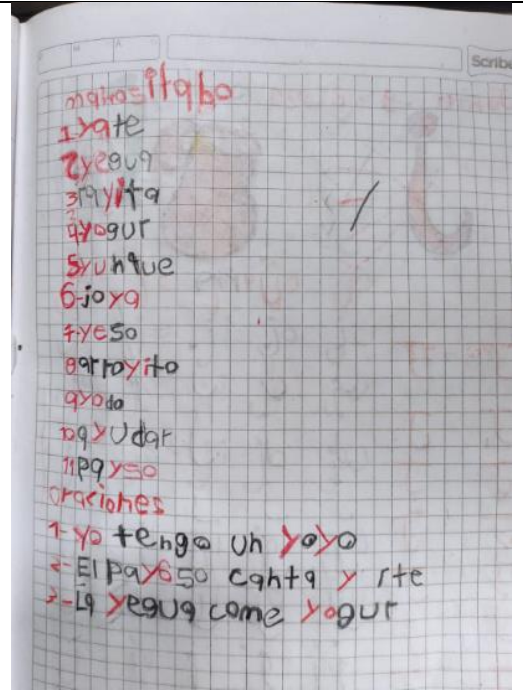 Scribe
1 yate
2 yegua
3 rayita
4 yogur
5 yunque
6-joya
7-yeso
8 arroyito
9 yodo
10 ayudar
11 payso
oraciones
1-yo tengo un yoyo
2-El payoso canta y rie
3-La yegua come yogur